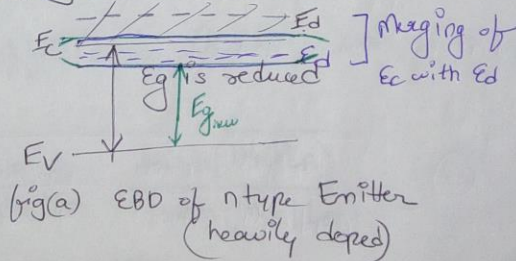 Ed
Ec
Ed
] Merging of
Ec with Ed
Eg is reduced
Eg new
Ev
fig(a) EBD of n type Emitter
(heavily doped)